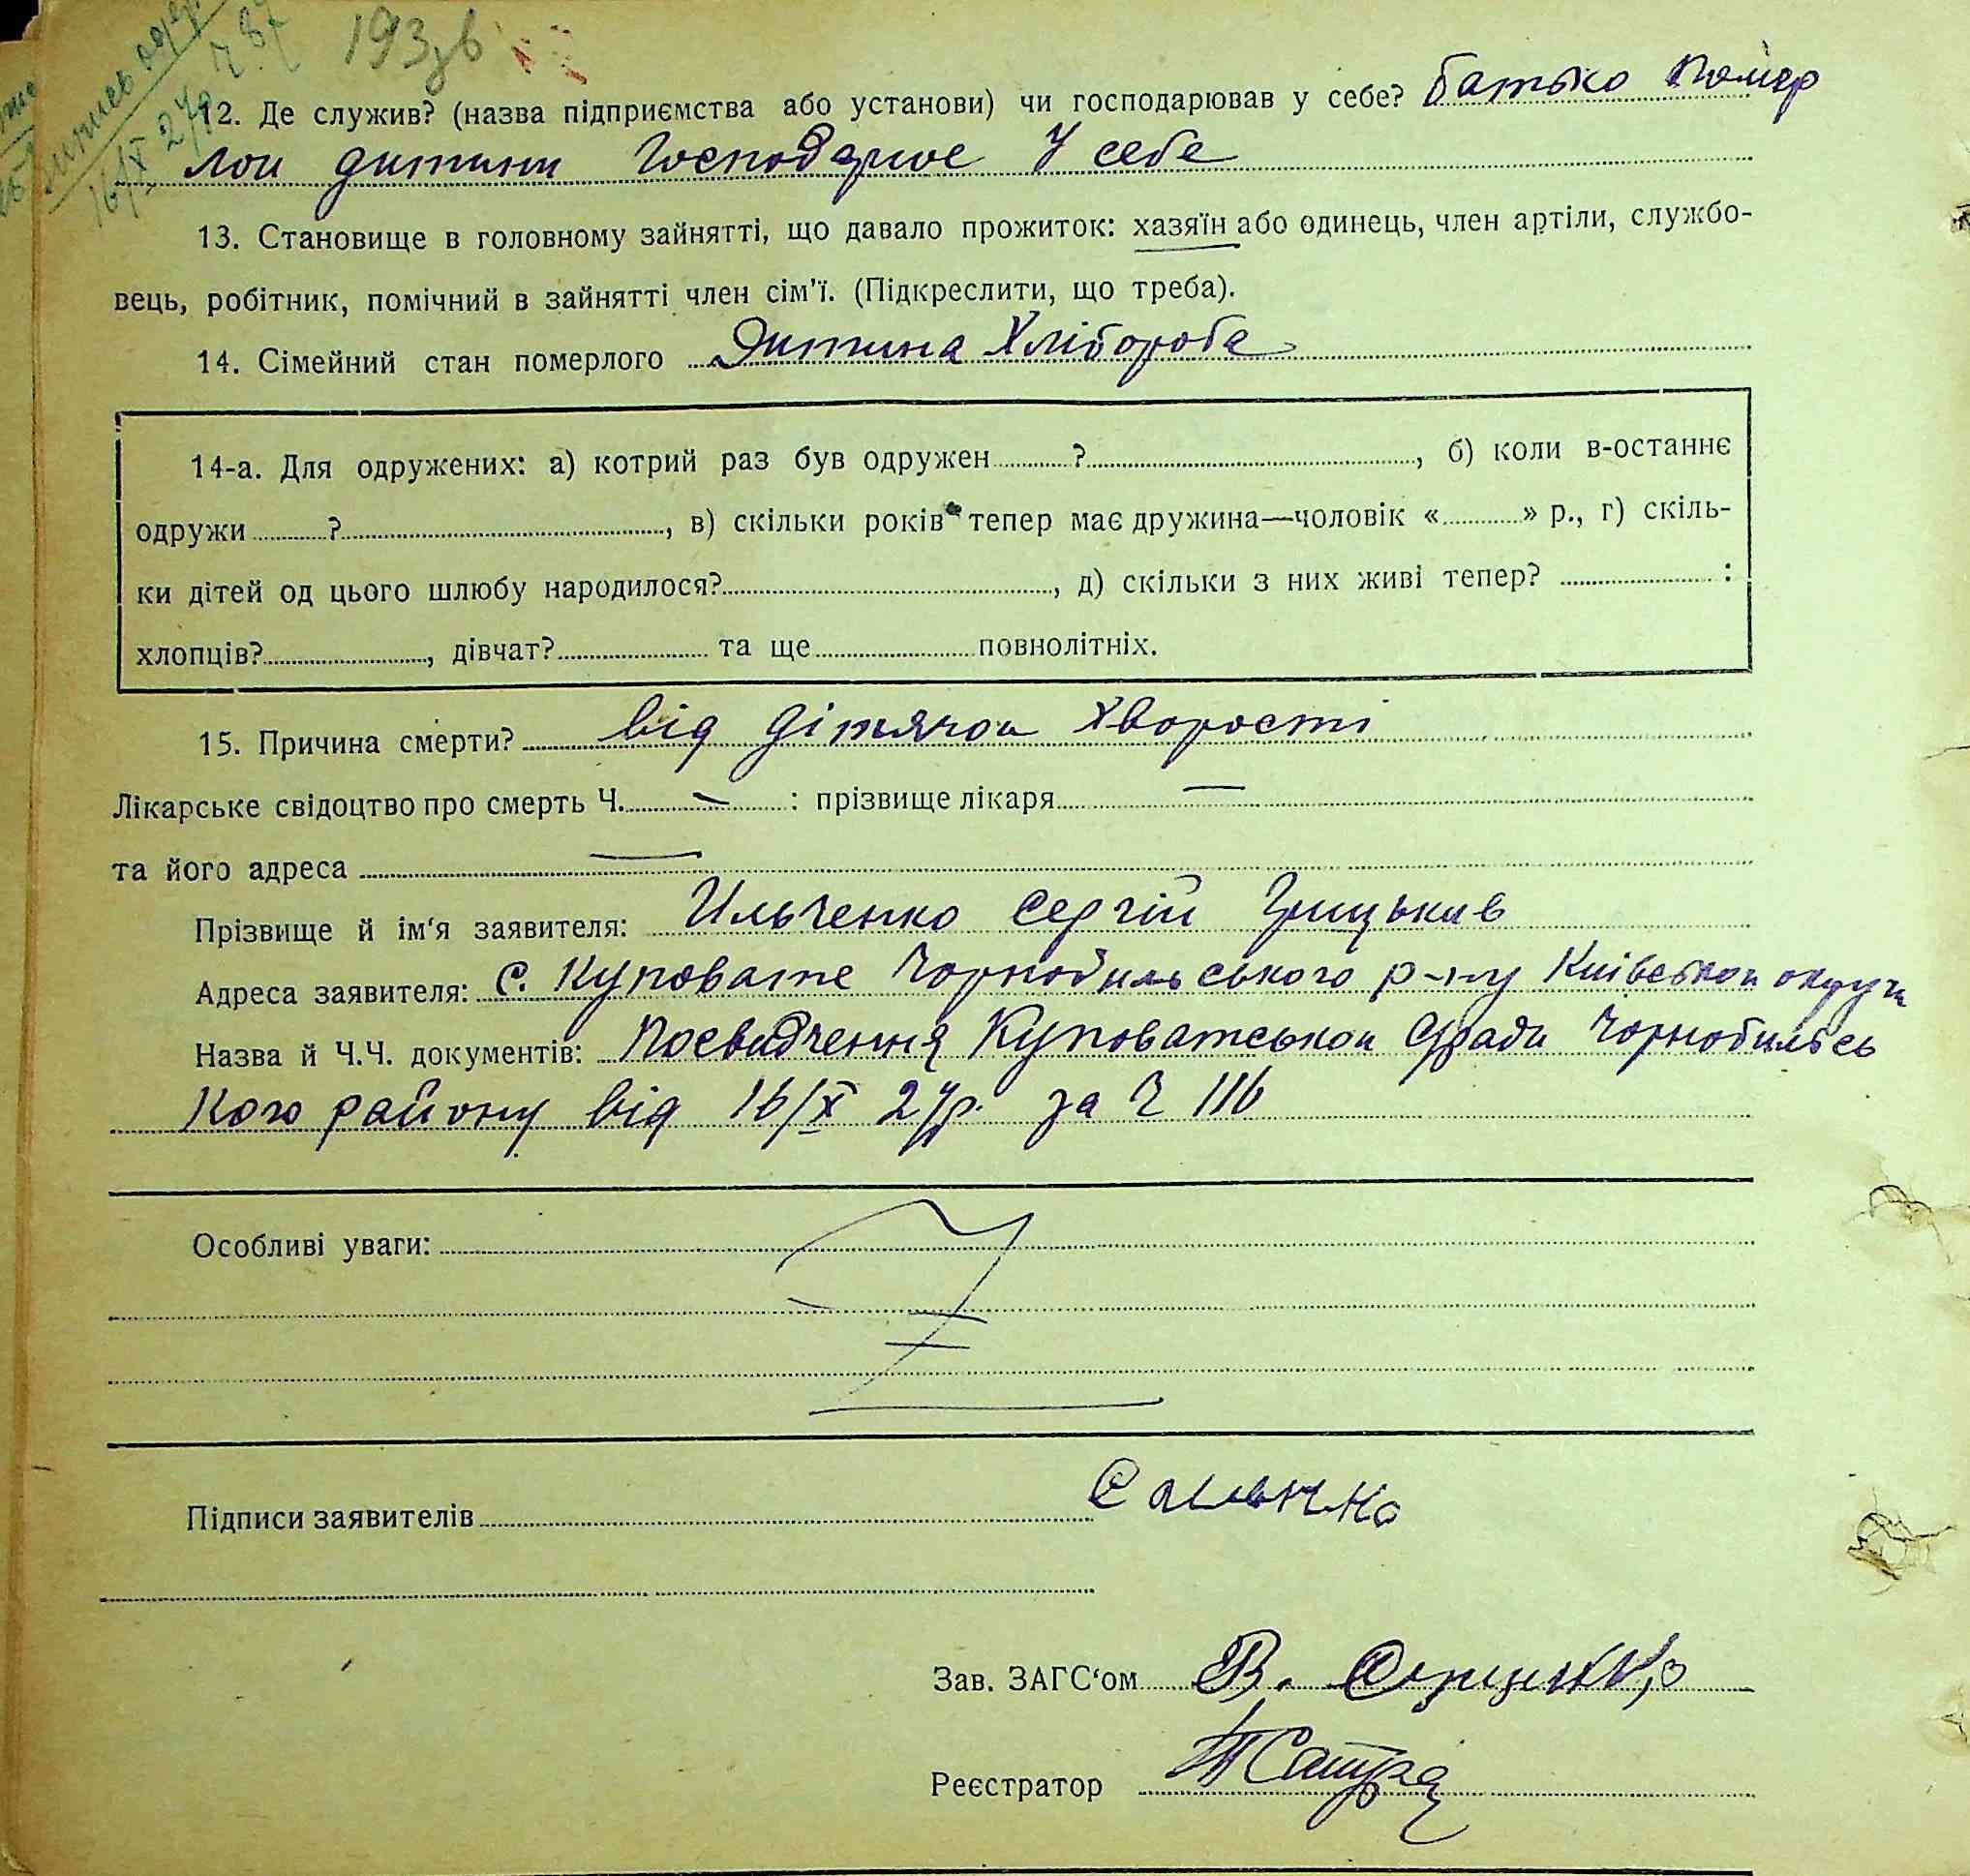 193зв
Випись
16/IX 27р. Ч. 87
12. Де служив? (назва підприємства або установи) чи господарював у себе? батько помер
лои дитини Господарює У себе
13. Становище в головному зайнятті, що давало прожиток: хазяїн або одинець, член артіли, службо-
вець, робітник, помічний в зайнятті член сім'ї. (Підкреслити, що треба).
14. Сімейний стан померлого Дитина Хлібороба
14-а. Для одружених: а) котрий раз був одружен ? , б) коли в-останнє
одружи ? , в) скільки років тепер має дружина—чоловік « » р., г) скіль-
ки дітей од цього шлюбу народилося? , д) скільки з них живі тепер? :
хлопців? , дівчат? та ще повнолітніх.
15. Причина смерти? від дітячои хворости
Лікарське свідоцтво про смерть Ч. — : прізвище лікаря —
та його адреса —
Прізвище й ім'я заявителя: Ильченко Сергій Грицьків
Адреса заявителя: с. Куповате Чорнобильського р-ну Київськои округи
Назва й Ч.Ч. документів: Посвидчення Куповатськои С/ради Чорнобильсь
кого району від 16/IX 27р. за Ч 116
Особливі уваги:
Підписи заявителів
Зав. ЗАГС'ом В.
Реєстратор